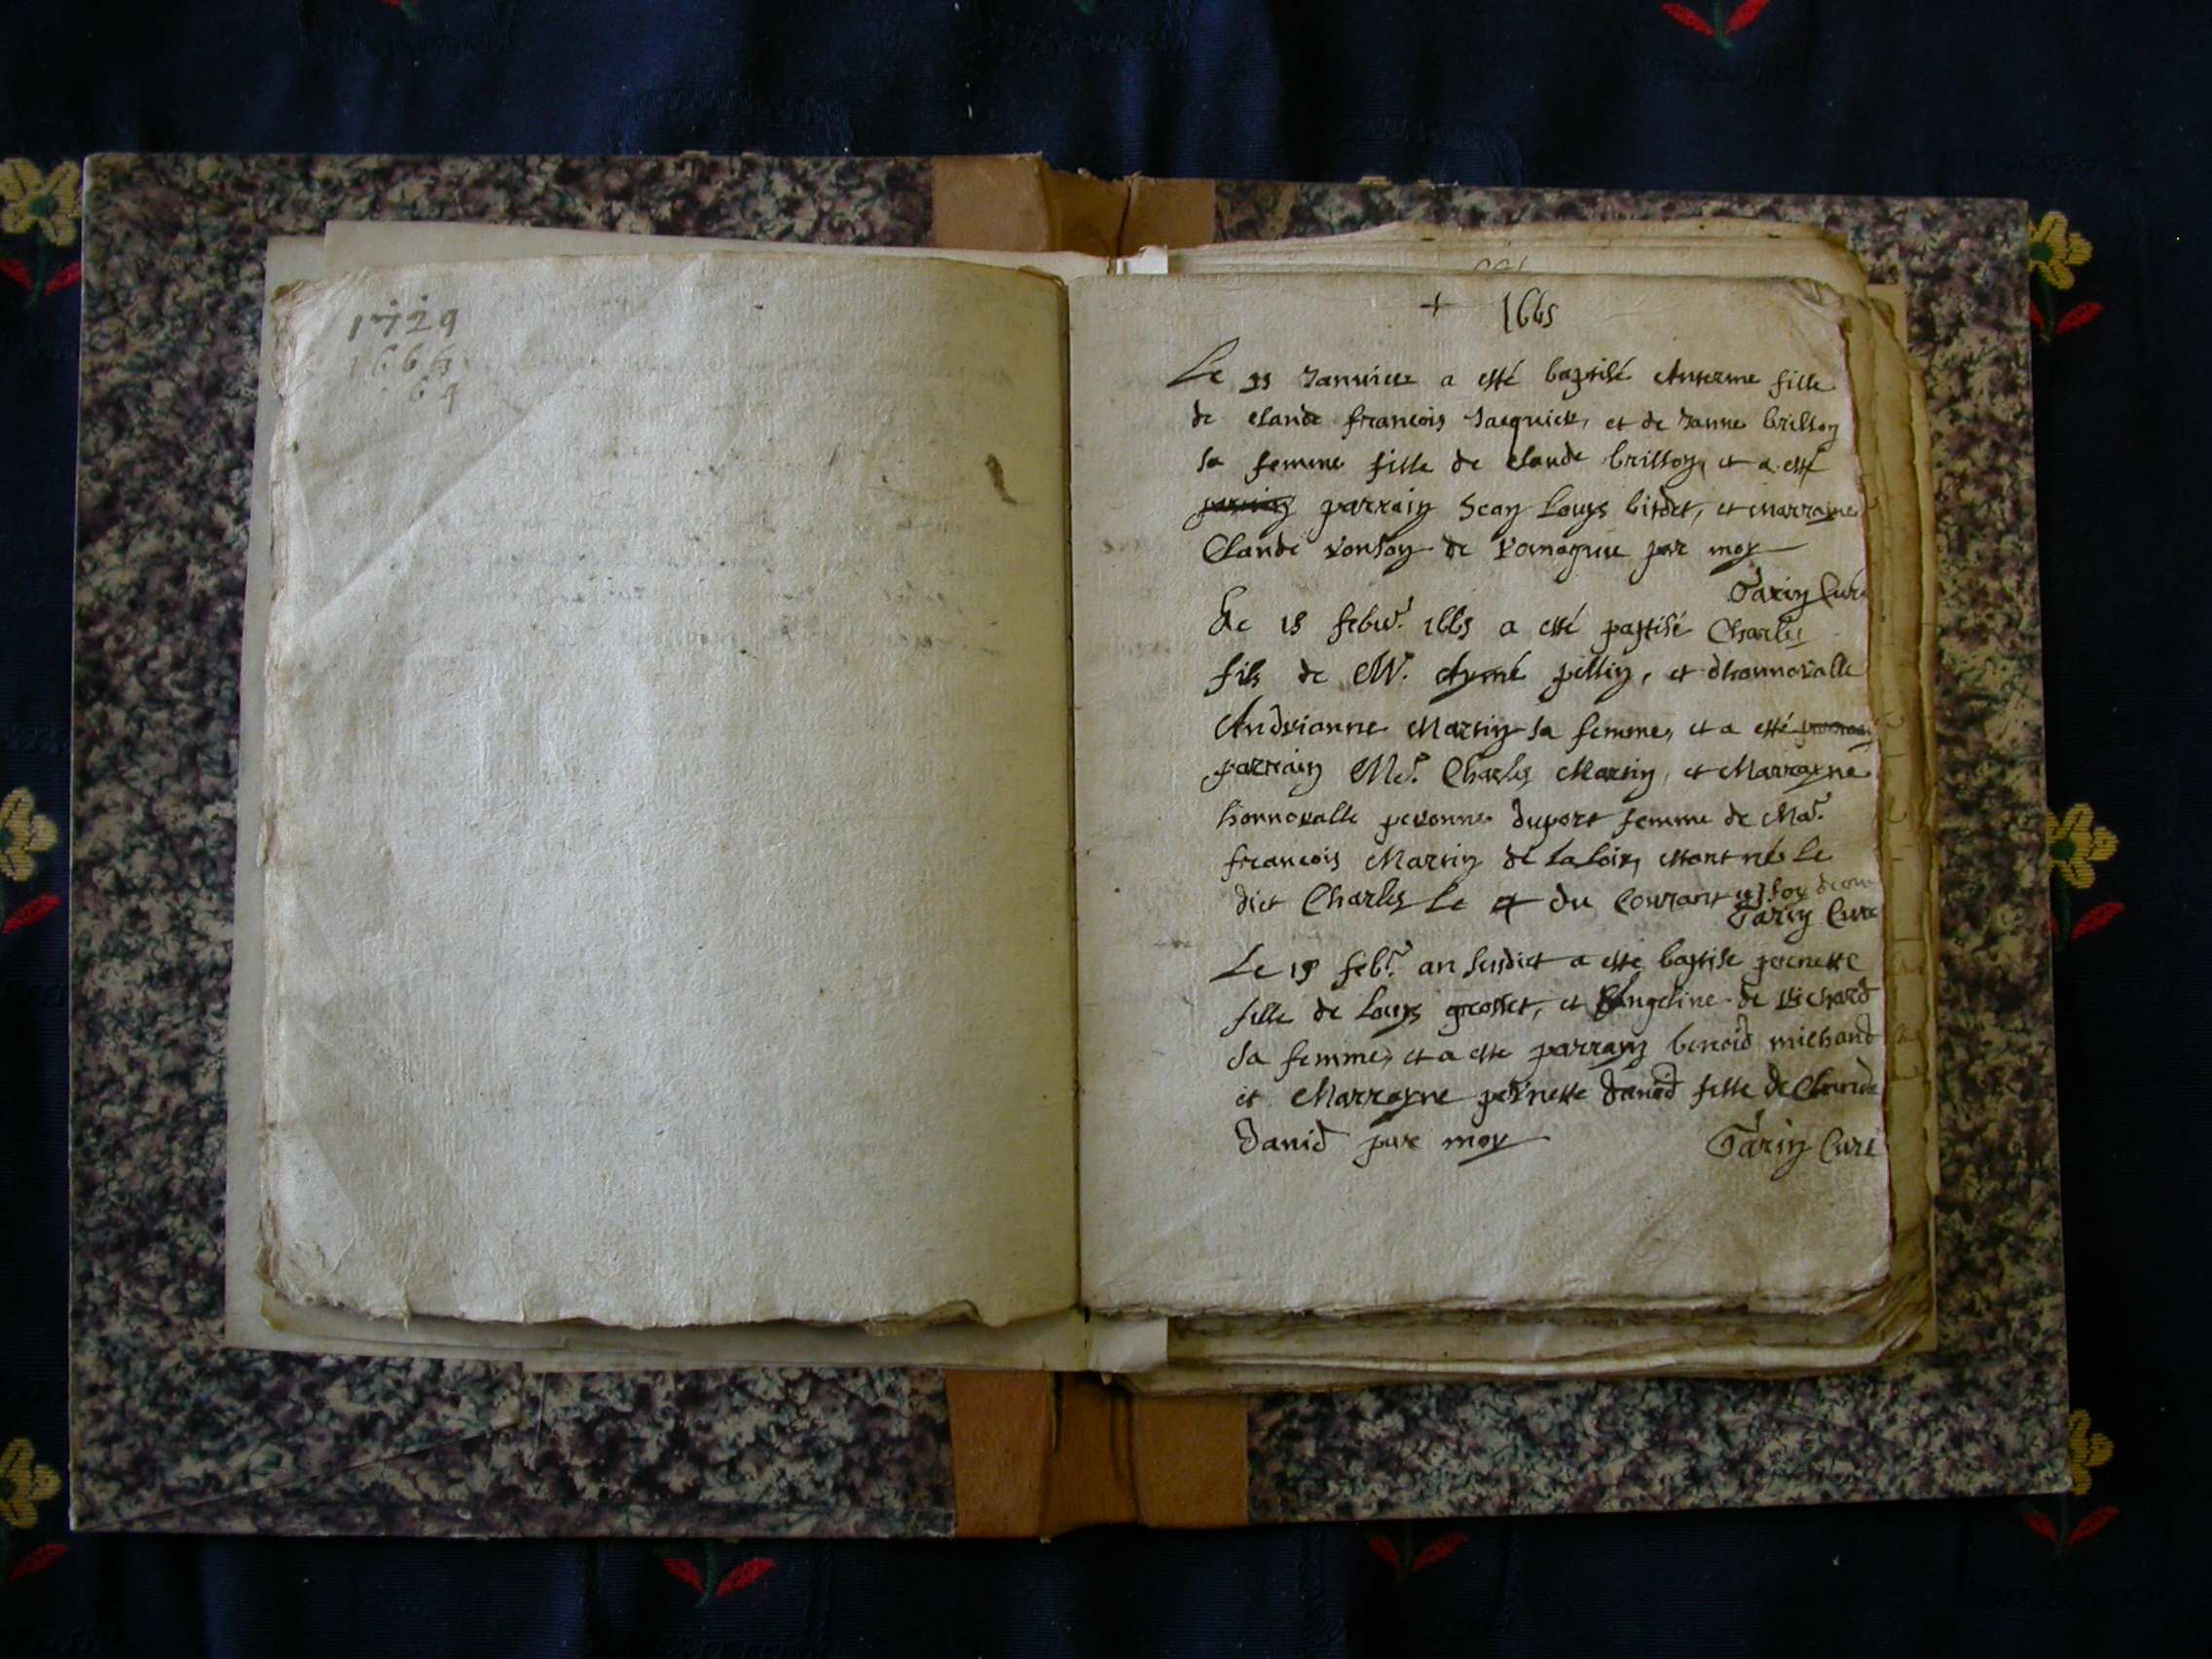 1729
1665
64
+ 1665
Le Janvier a esté baptisé Anterme fille
de claude francois et de Janne brilloy
sa femme fille de claude brilloy, et a esté
parrain Jean Louys birdet, et marrayne
Claude de par moy
Tarin Curé
Le 18 febvr. 1665 a esté baptisé Charles
fils de Mr. Aymé pillin, et dhonnorable
Andrianne Martin sa femme, et a esté
parrain Mr. Charles Martin, et Marrayne
honnorable peronne duport femme de Mr.
francois Martin de la loix, estant né le
dict Charles le 4 du Courant
Tarin Curé
Le 19 febr. an susdict a esté baptisé pernette
fille de Louys grosset, et Angeline de Richard
sa femme, et a esté parrayn benoid michaud
et Marrayne pernette david fille de Claude
David par moy
Tarin Curé